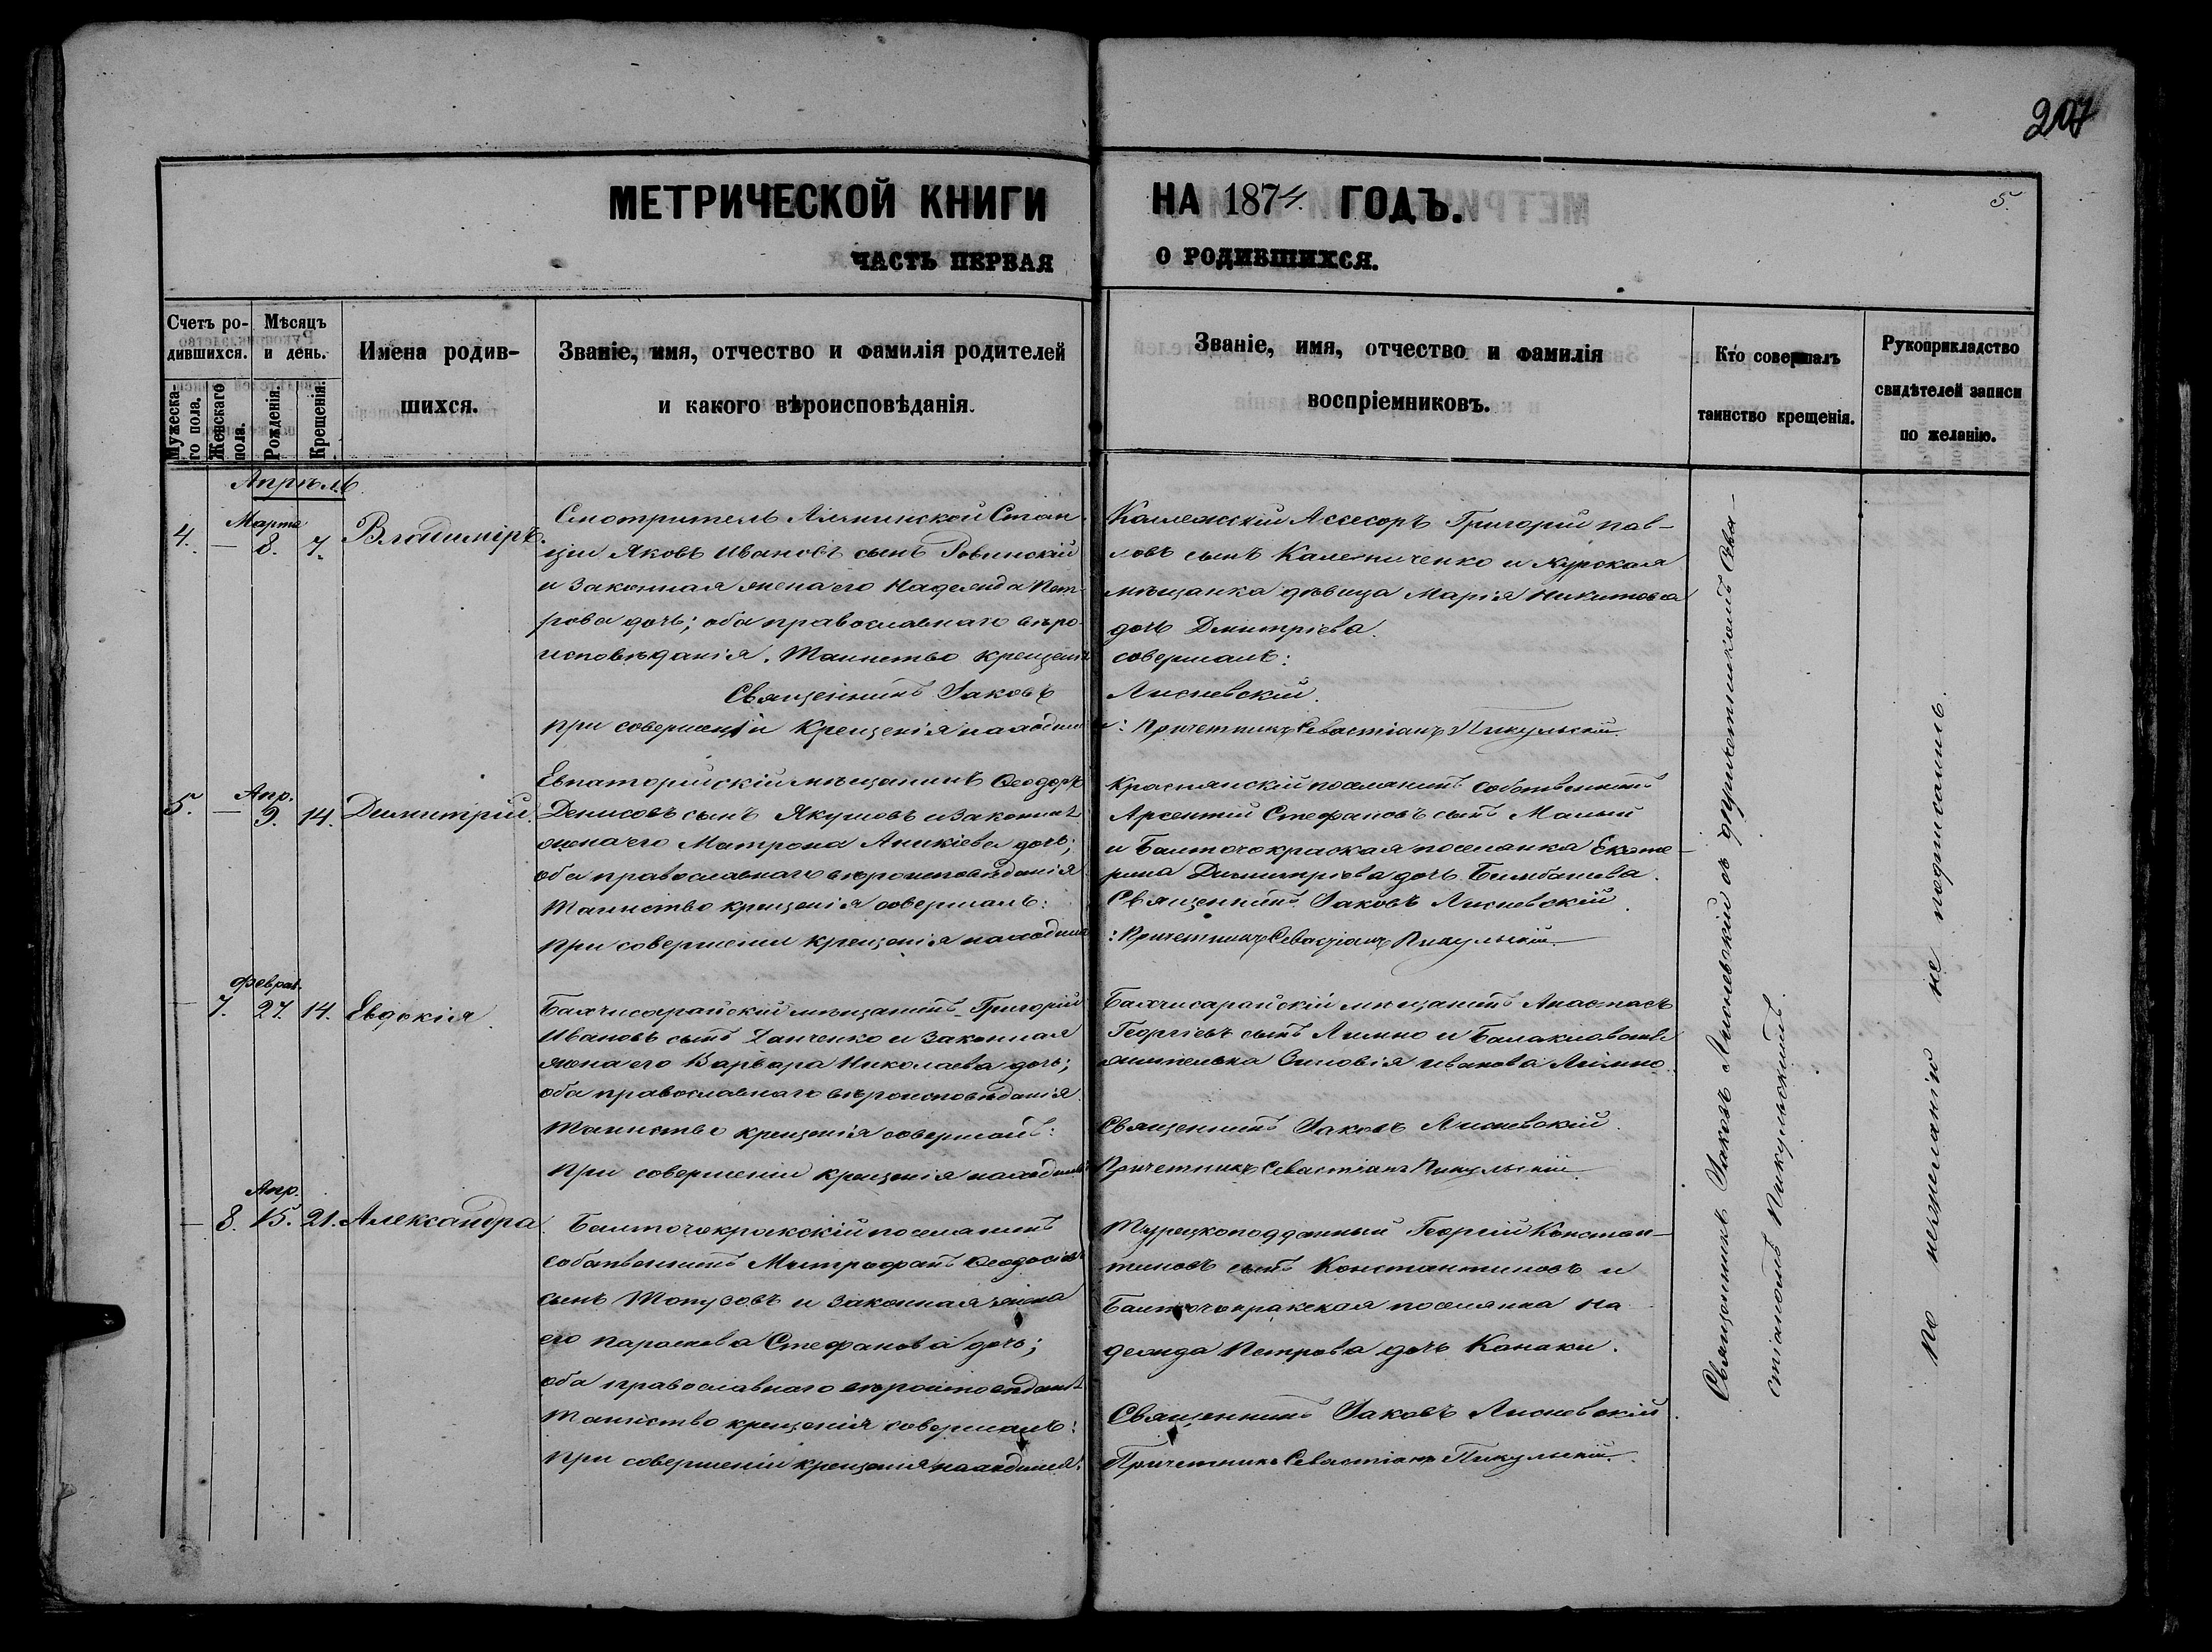 207
МЕТРИЧЕСКОЙ КНИГИ НА 1874. ГОДЪ.
5.
ЧАСТЬ ПЕРВАЯ О РОДИВШИХСЯ.
Счетъ ро-
дившихся.
Мужеска-
го пола.
Женскаго
пола.
Мѣсяцъ
и день.
Рожденія.
Крещенія.
Имена родив-
шихся.
Званіе, имя, отчество и фамилія родителей
и какого вѣроисповѣданія.
Званіе, имя, отчество и фамилія
воспріемниковъ.
Кто совершалъ
таинство крещенія.
Рукоприкладство
свидѣтелей записи
по желанію.
Апрѣль
Марта
4. — 8. 7. Владиміръ.
Смотритель Альминской Стан-
ціи Яковъ Ивановъ сынъ Ровинскій
и законная жена его Надежда Пет-
рова дочь; оба православнаго вѣро-
исповѣданія. Таинство крещенія
Священникъ Іаковъ
при совершеніи крещенія находил
Коллежскій Ассесоръ Григорій Пав-
ловъ сынъ Калениченко и Курская
мѣщанка дѣвица Марія Никитова
дочь Дмитріева.
совершалъ:
Лисневскій.
: Причетникъ Севастіанъ Пикульскій.
Апр.
5. — 9. 14. Димитрій.
Евпаторійскій мѣщанинъ Ѳеодоръ
Денисовъ сынъ Якушовъ и законная
жена его Матрона Аникіева дочь;
оба православнаго вѣроисповѣданія
Таинство крещенія совершалъ:
при совершеніи крещенія находил
поселянинъ собственникъ
Арсентій Стефановъ сынъ Малый
и поселянка Екате-
рина Димитріева дочь Бимбашева.
Священникъ Іаковъ Лисневскій.
: Причетникъ Севастіанъ Пикульскій.
Феврал.
— 7. 27. 14. Евдокія.
Бахчисарайскій мѣщанинъ Григорій
Ивановъ сынъ Ханченко и законная
жена его Варвара Николаева дочь;
оба православнаго вѣроисповѣданія.
Таинство крещенія совершалъ:
При совершеніи крещенія находил
Бахчисарайскій мѣщанинъ Анастасъ
Георгіевъ сынъ Лимно и
жителька Зиновія Иванова Лимно.
Священникъ Іаковъ Лисневскій.
Причетникъ Севастіанъ Пикульскій.
Апр.
— 8. 15. 21. Александра.
поселянинъ
собственникъ Митрофанъ Ѳеодосіевъ
сынъ Топузовъ и законная жена
его Параскева Стефанова дочь;
оба православнаго вѣроисповѣданія
Таинство крещенія совершалъ:
при совершеніи крещенія находился:
Турецкоподданный Георгій Констан-
тиновъ сынъ Константиновъ и
поселянка На
дежда Петрова дочь Канаки.
Священникъ Іаковъ Лисневскій.
Причетникъ Севастіанъ Пикульскій.
Священникъ Іаковъ Лисневскій съ причетникомъ Сева-
стіаномъ Пикульскимъ.
По нежеланію не подписались.